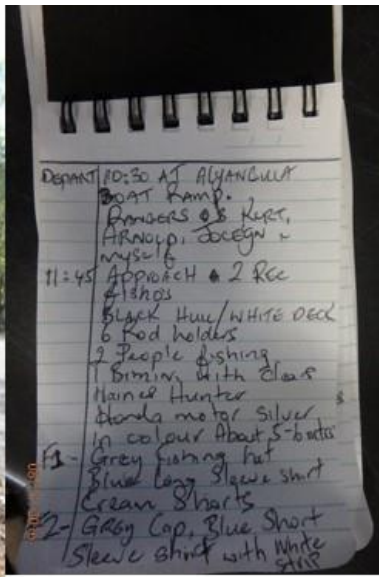 DEPART 10:30 AT ALYANGULA
BOAT RAMP.
RANGERS KURT,
ARNOLD, JOCEGN &
myself
11:45 APPROACH 2 REC
fishos
BLACK HULL/WHITE DECK
6 Rod holders
2 People fishing
1 Bimini with clears
Haines Hunter
Honda motor Silver
in colour About 5-6 metes
F1 - Grey fishing hat
Blue long Sleeve shirt
Cream Shorts
F2 - Grey Cap, Blue Short
Sleeve shirt with White
strip